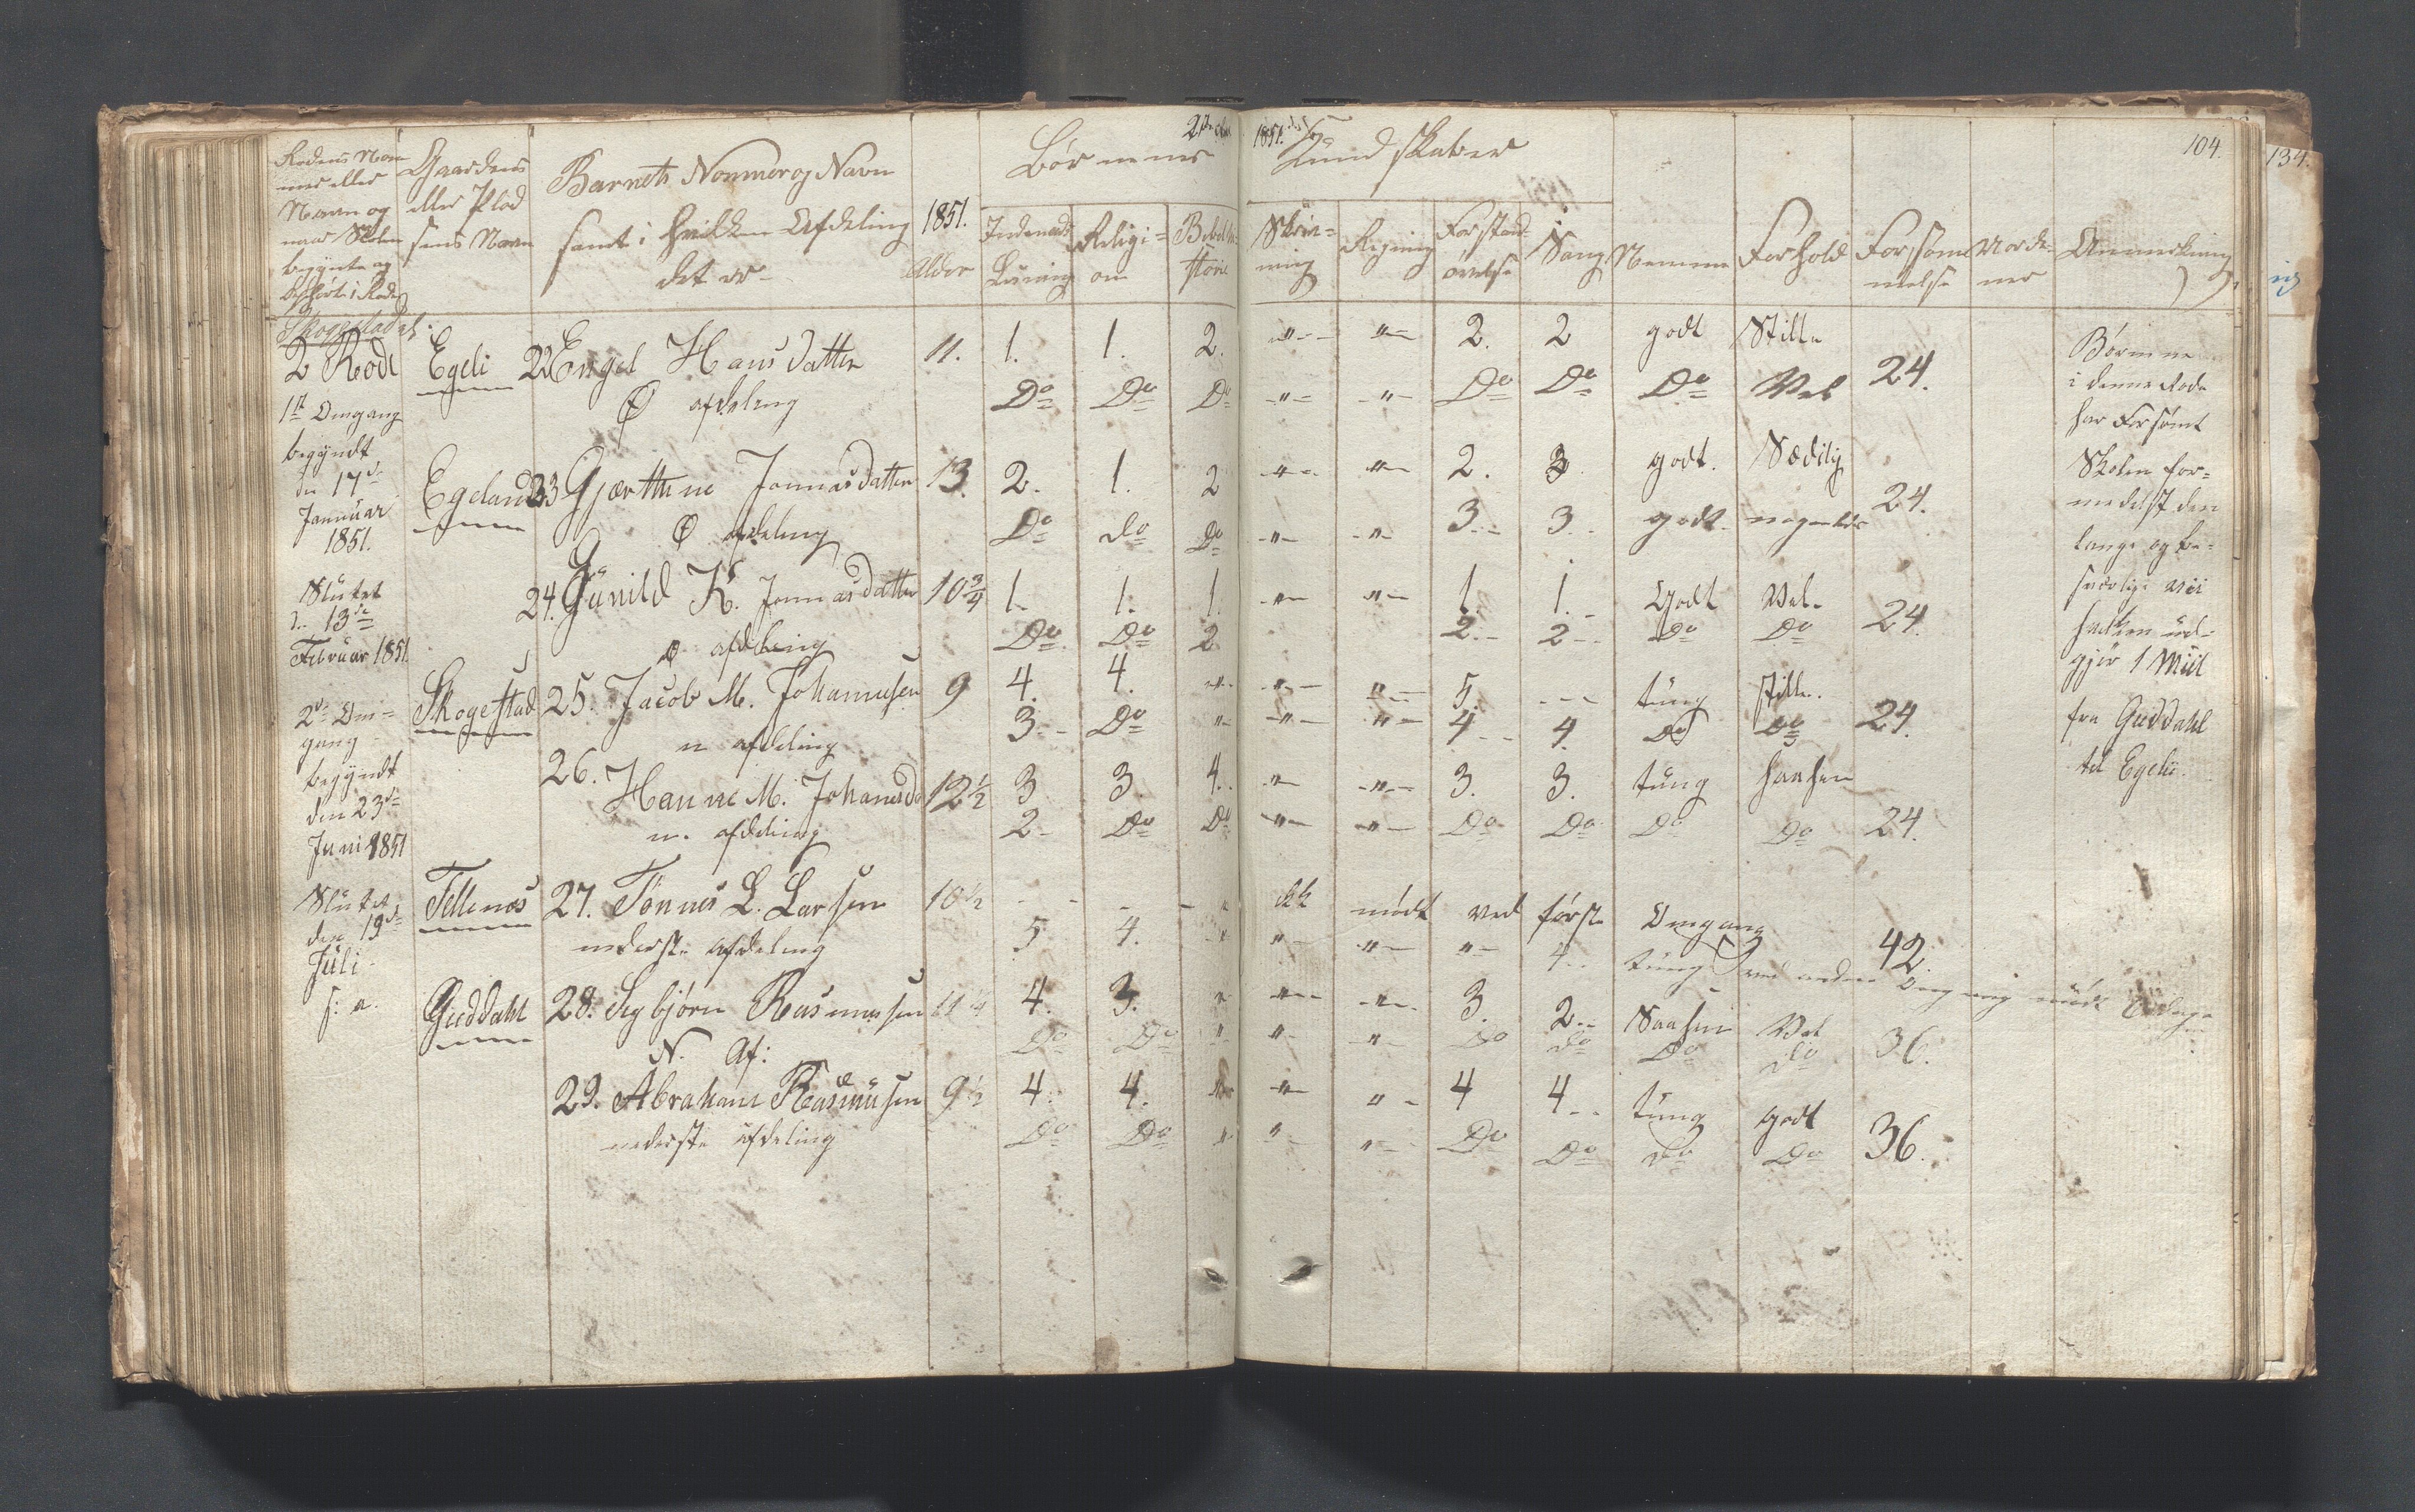 104.
134.
Rodens Nom
mer eller
Navn og
naar Skolen
begynte og
i Rode
Gaardens
eller Plad
sens Navn
Barnets Nommer og Navn
samt i hvilken Afdeling
det er
1851.
Alder
Børnenes
Kundskaber
1851.
Indenads
Læsning
Religi=
on
Bibelhi
storie
Skriv=
ning
Regning
Forstand
øvelse
Sang
Nemme
Forhold
Forsøm
melse
Anmerkning
Skogestad
2 Rode Egeli 22 Engel Hansdatter 11. 1. 1. 2. " " 2. 2 godt Stille
Ø afdeling Do Do Do " " Do Do Do Vel 24.
1st Omgang
begyndt
den 17de
Januar
1851.
Egeland 23 Gjærthine Jonnasdatter 13. 2. 1. 2 " " 2. 3 godt. Sædelig
Ø afdeling Do do Do " " 3 3 godt. 24.
24. Gunild K. Jonnasdatter 10 3/4 1. 1. 1. " " 1. 1. Godt Vel.
Ø afdeling Do Do 2 2 2 Do Do 24.
Slutet
d. 13de
Februar 1851.
Skogestad 25. Jacob M. Johannesen 9 4. 4. " " " 5. tung stille.
n afdeling 3 Do " " " 4 4. Do Do 24.
2de Om=
gang
begyndt
den 23de
Juni 1851
26. Hanne M. Johanesd 12 1/2 3 3. 4. " " 3. 3. tung
n. afdeling 2 Do Do " " Do Do Do Do 24.
Slutet
den 19de
Juli
s: a.
Tellenes 27. Tønnes L. Larsen 10 1/2 ikk mødt ved første Omgang
nederste afdeling 5 4. " " " " 4 tung 42.
ved anden Omgang mødt
Guddahl 28. Segbjørn Rasmussen 11 1/4 4. 3. " " " 3. 2 Vel
N. Af: Do Do " " " Do do Do do 36.
29. Abraham Rasmusen 9 1/2 4. 4. " " " 4 4 tung godt
nederste afdeling Do Do " " " Do Do do Do 36.
Børnene
i denne Rode
har Forsømt
Skolen for=
medelst den
lange og be=
sværlige Vei
hvilken ud=
gjør 1 Miil
fra Guddahl
til Egeli.